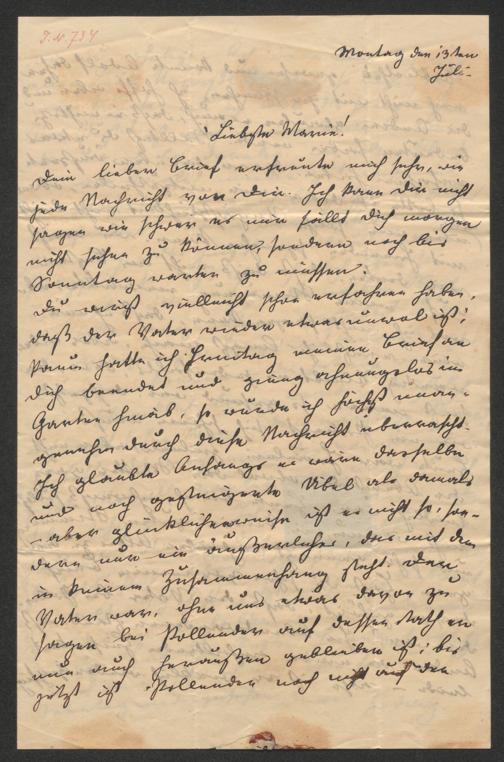 J.N. 734
Montag den 13ten
Juli.
Liebste Marie!
Dein lieber Brief erfreute mich sehr, wie
jede Nachricht von Dir. Ich kann Dir nicht
sagen wie schwer es mir fällt Dich morgen
nicht sehen zu können, sondern noch bis
Sonntag warten zu müssen.
Du wirst vielleicht schon erfahren haben,
daß der Vater wieder etwas unwol ist;
kaum hatte ich Freitag meinen Brief an
Dich beendet und ging ahnungslos im
Garten hinab, so wurde ich höchst unan-
genehm durch diese Nachricht überrascht.
Ich glaubte Anfangs es wäre dasselbe
und noch gesteigerte Übel als damals
aber glücklicherweise ist es nicht so, son-
dern nur ein äußerliches, das mit dem
in keinem Zusammenhang steht. Der
Vater war, ohne uns etwas davon zu
sagen bei Kollender auf dessen Rath er
nun auch heraußen geblieben ist; bis
jetzt ist Kollender noch nicht auf den